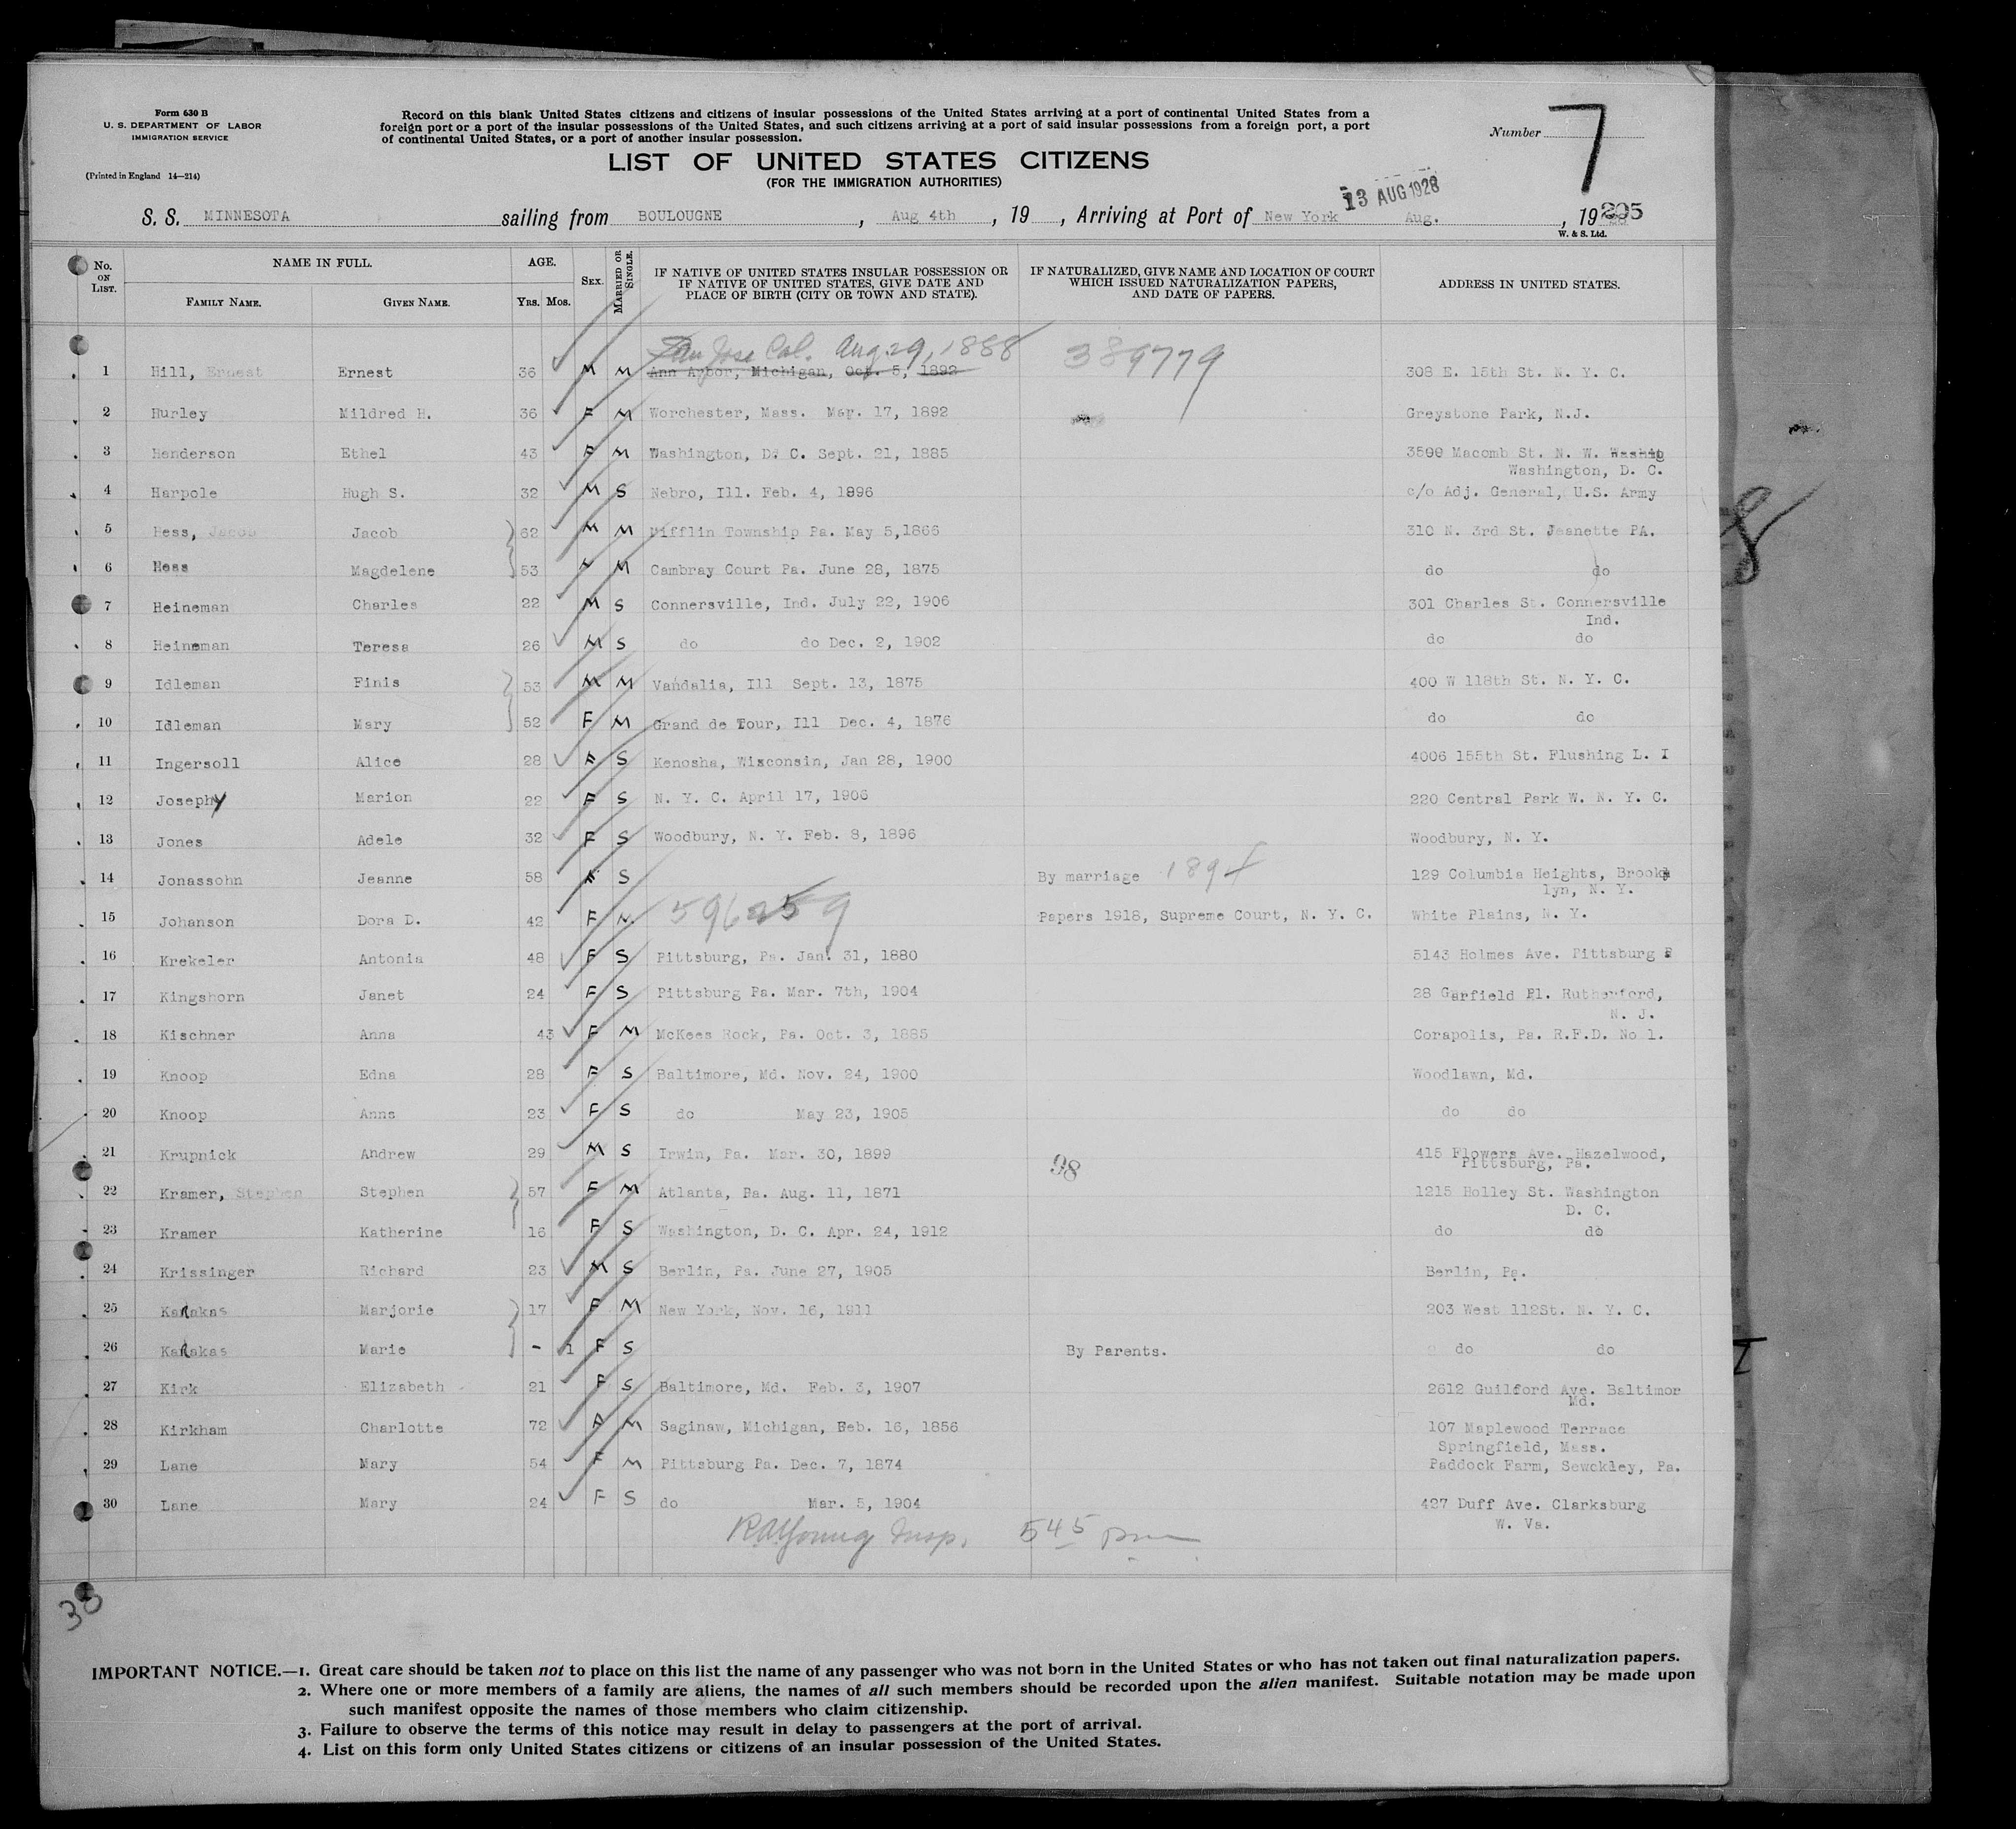 Form 630 B
U. S. DEPARTMENT OF LABOR
IMMIGRATION SERVICE
(Printed in England 14—214)
Record on this blank United States citizens and citizens of insular possessions of the United States arriving at a port of continental United States from a
foreign port or a port of the insular possessions of the United States, and such citizens arriving at a port of said insular possessions from a foreign port, a port
of continental United States, or a port of another insular possession.
Number 7
LIST OF UNITED STATES CITIZENS
(FOR THE IMMIGRATION AUTHORITIES)
13 AUG 1928
S. S. MINNESOTA sailing from BOULOUGNE, Aug 4th, 19 , Arriving at Port of New York Aug. , 19
205
W. & S. Ltd.
No. ON LIST. NAME IN FULL. AGE. SEX. MARRIED OR SINGLE. IF NATIVE OF UNITED STATES INSULAR POSSESSION OR IF NATIVE OF UNITED STATES, GIVE DATE AND PLACE OF BIRTH (CITY OR TOWN AND STATE). IF NATURALIZED, GIVE NAME AND LOCATION OF COURT WHICH ISSUED NATURALIZATION PAPERS, AND DATE OF PAPERS. ADDRESS IN UNITED STATES.
FAMILY NAME. GIVEN NAME. Yrs. Mos.
San Jose Cal. Aug. 29, 1888 389779
1 Hill, Ernest Ernest 36 M M Ann Arbor, Michigan, Oct. 5, 1892 308 E. 15th St. N. Y. C.
2 Hurley Mildred H. 36 F M Worchester, Mass. Mar. 17, 1892 Greystone Park, N.J.
3 Henderson Ethel 43 F M Washington, D. C. Sept. 21, 1885 3500 Macomb St. N. W. Washig
Washington, D. C.
4 Harpole Hugh S. 32 M S Nebro, Ill. Feb. 4, 1896 c/o Adj. General, U.S. Army
5 Hess, Jacob Jacob 62 M M Mifflin Township Pa. May 5,1866 310 N. 3rd St. Jeanette PA.
6 Hess Magdelene 53 M Cambray Court Pa. June 28, 1875 do do
7 Heineman Charles 22 M S Connersville, Ind. July 22, 1906 301 Charles St. Connersville
Ind.
8 Heineman Teresa 26 M S do do Dec. 2, 1902 do do
9 Idleman Finis 53 M M Vandalia, Ill Sept. 13, 1875 400 W 118th St. N. Y. C.
10 Idleman Mary 52 F M Grand de Tour, Ill Dec. 4, 1876 do do
11 Ingersoll Alice 28 F S Kenosha, Wisconsin, Jan 28, 1900 4006 155th St. Flushing L. I
12 Josephy Marion 22 F S N. Y. C. April 17, 1906 220 Central Park W. N. Y. C.
13 Jones Adele 32 F S Woodbury, N. Y. Feb. 8, 1896 Woodbury, N. Y.
14 Jonassohn Jeanne 58 F S By marriage 1894 129 Columbia Heights, Brook
lyn, N. Y.
15 Johanson Dora D. 42 F M 596259 Papers 1918, Supreme Court, N. Y. C. White Plains, N. Y.
16 Krekeler Antonia 48 F S Pittsburg, Pa. Jan. 31, 1880 5143 Holmes Ave. Pittsburg P
17 Kingshorn Janet 24 F S Pittsburg Pa. Mar. 7th, 1904 28 Garfield Pl. Rutherford,
N. J.
18 Kischner Anna 43 F M McKees Rock, Pa. Oct. 3, 1885 Corapolis, Pa. R.F.D. No 1.
19 Knoop Edna 28 F S Baltimore, Md. Nov. 24, 1900 Woodlawn, Md.
20 Knoop Anna 23 F S do May 23, 1905 do do
21 Krupnick Andrew 29 M S Irwin, Pa. Mar. 30, 1899 415 Flowers Ave. Hazelwood,
Pittsburg, Pa.
98
22 Kramer, Stephen Stephen 57 F M Atlanta, Pa. Aug. 11, 1871 1215 Holley St. Washington
D. C.
23 Kramer Katherine 16 F S Washington, D. C. Apr. 24, 1912 do do
24 Krissinger Richard 23 M S Berlin, Pa. June 27, 1905 Berlin, Pa.
25 KaRakas Marjorie 17 F M New York, Nov. 16, 1911 203 West 112St. N. Y. C.
26 KaRakas Marie - 1 F S By Parents. do do
27 Kirk Elizabeth 21 F S Baltimore, Md. Feb. 3, 1907 2612 Guilford Ave. Baltimor
Md.
28 Kirkham Charlotte 72 F M Saginaw, Michigan, Feb. 16, 1856 107 Maplewood Terrace
Springfield, Mass.
29 Lane Mary 54 F M Pittsburg Pa. Dec. 7, 1874 Paddock Farm, Sewckley, Pa.
30 Lane Mary 24 F S do Mar. 5, 1904 427 Duff Ave. Clarksburg
W. Va.
Young Insp. 545 pm
38
8
IMPORTANT NOTICE.—1. Great care should be taken not to place on this list the name of any passenger who was not born in the United States or who has not taken out final naturalization papers.
2. Where one or more members of a family are aliens, the names of all such members should be recorded upon the alien manifest. Suitable notation may be made upon
such manifest opposite the names of those members who claim citizenship.
3. Failure to observe the terms of this notice may result in delay to passengers at the port of arrival.
4. List on this form only United States citizens or citizens of an insular possession of the United States.